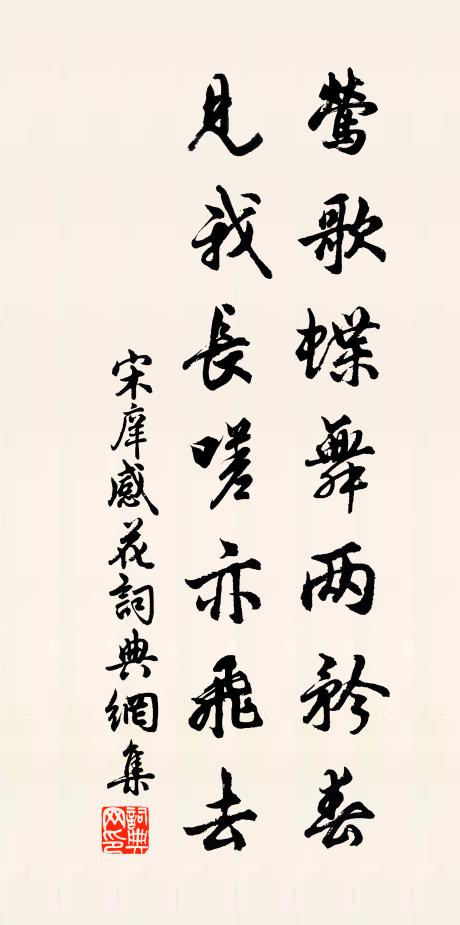 莺歌蝶舞两矜春
見我長嗟亦飛去
宋庠感花詞典網集
詞典網印